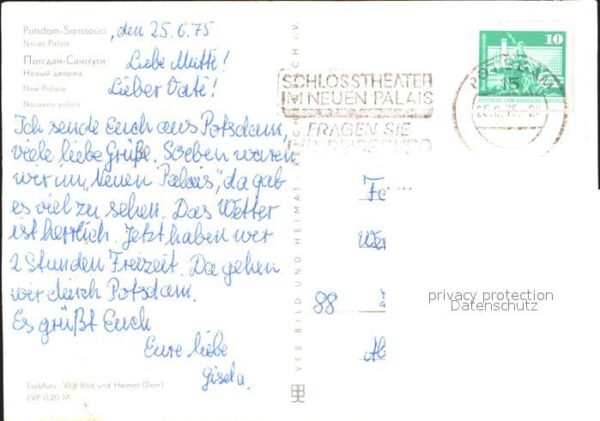 Potsdam-Sanssouci
Neues Palais
Потсдам-Сансуси
Новый дворец
New Palace
Nouveau palais
, den 25.6.75
Liebe Mutti!
Lieber Vati!
Ich sende Euch aus Potsdam,
viele liebe Grüße. Soeben waren
wir im „Neuen Palais“, da gab
es viel zu sehen. Das Wetter
ist herrlich. Jetzt haben wir
2 Stunden Freizeit. Da gehen
wir durch Potsdam.
Es grüßt Euch
Eure liebe
Gisela.
Farbfoto: VEB Bild und Heimat (Dorr)
EVP 0,20 M
VEB BILD UND HEIMAT
SCHLOSSTHEATER
IM NEUEN PALAIS
FRAGEN SIE
10
POTSDAM
15
Fa
Wer
88
Ab
privacy protection
Datenschutz